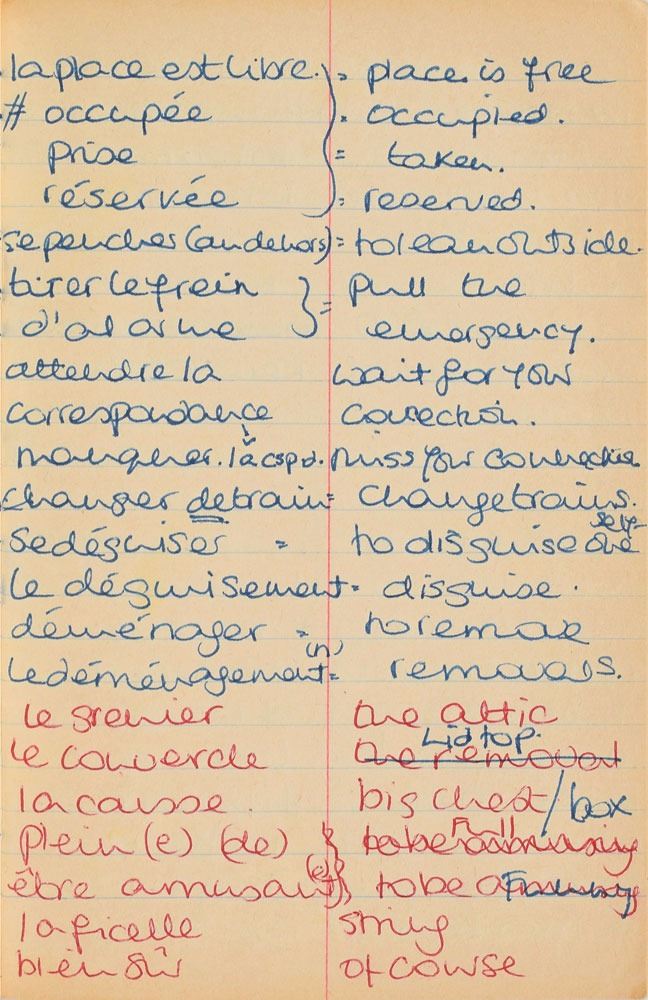 la place est libre. = place is free
# occupée = occupied.
prise = taken.
réservée = reserved.
se pencher (au dehors) = to lean outside.
tirer le frein = pull the
d'alarme emergency.
attendre la wait for your
correspondance conection.
manquer. la cspd. miss your connection
changer de train = change trains.
Se déguiser = to disguise one self
le déguisement = disguise.
déménager = to remove
le déménagement (n) = removals.
le grenier the attic
le couvercle the removal Lid top.
la caisse. big chest / box
plein (e) (de) to be amusing Full
être amusant (e) to be amusing Funny
la ficelle string
bien sûr of course